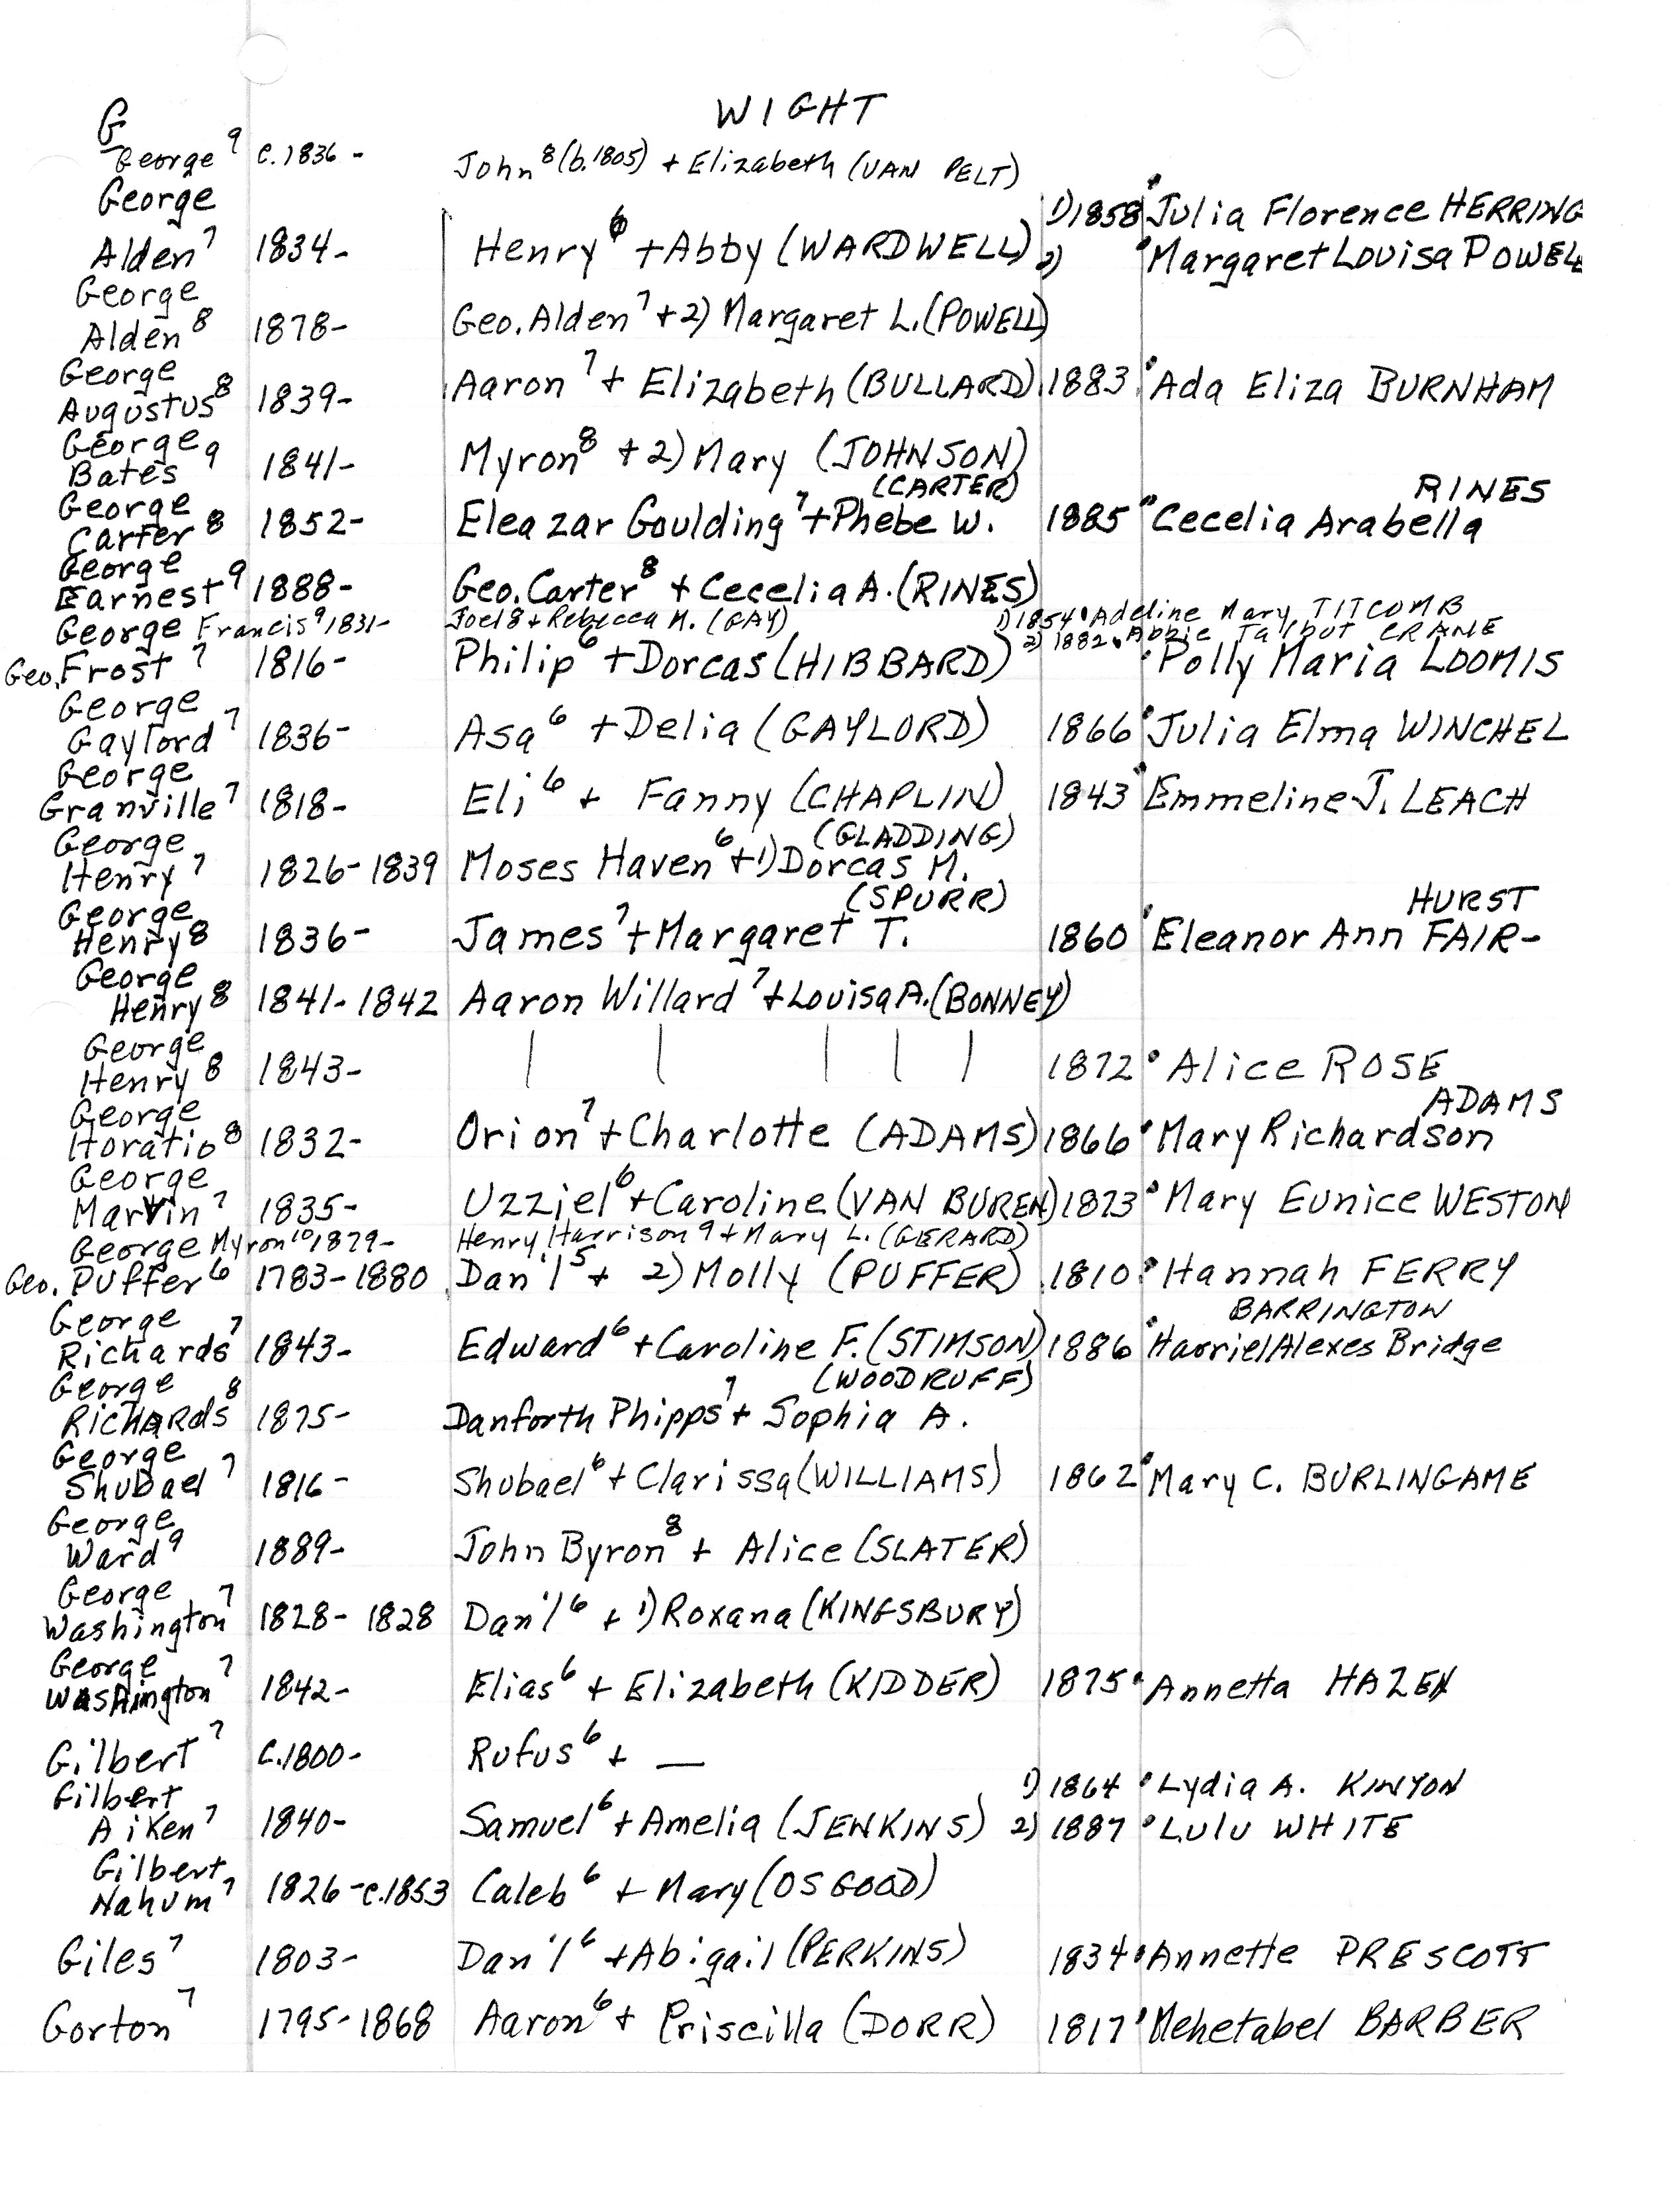 WIGHT
G
George⁹ c.1836- John⁸(b.1805) + Elizabeth (VAN PELT)
George 1) 1858 Julia Florence HERRING
Alden⁷ 1834- Henry⁶ + Abby (WARDWELL) 2) Margaret Louisa POWELL
George
Alden⁸ 1878- Geo. Alden⁷ + 2) Margaret L. (POWELL)
George
Augustus⁸ 1839- Aaron⁷ + Elizabeth (BULLARD) 1883 Ada Eliza BURNHAM
George
Bates⁹ 1841- Myron⁸ + 2) Mary (JOHNSON)
George (CARTER) RINES
Carter⁸ 1852- Eleazar Goulding⁷ + Phebe W. 1885 Cecelia Arabella
George
Earnest⁹ 1888- Geo. Carter⁸ + Cecelia A. (RINES)
George Francis⁹ 1831- Joel 8 + Rebecca M. (GAY) 1) 1854 Adeline Mary TITCOMB
2) 1882 Abbie Talbut CRANE
Geo. Frost⁷ 1816- Philip⁶ + Dorcas (HIBBARD) Polly Maria LOOMIS
George
Gaylord⁷ 1836- Asa⁶ + Delia (GAYLORD) 1866 Julia Elma WINCHEL
George
Granville⁷ 1818- Eli⁶ + Fanny (CHAPLIN) 1843 Emmeline J. LEACH
George (GLADDING)
Henry⁷ 1826-1839 Moses Haven⁶ + 1) Dorcas M.
George (SPURR) HURST
Henry⁸ 1836- James⁷ + Margaret T. 1860 Eleanor Ann FAIR-
George
Henry⁸ 1841-1842 Aaron Willard⁷ + Louisa A. (BONNEY)
George
Henry⁸ 1843- | | | | | 1872 Alice ROSE
George ADAMS
Horatio⁸ 1832- Orion⁷ + Charlotte (ADAMS) 1866 Mary Richardson
George
Marvin⁷ 1835- Uzziel⁶ + Caroline (VAN BUREN) 1873 Mary Eunice WESTON
George Myron¹⁰ 1879- Henry Harrison 9 + Mary L. (GERARD)
Geo. Puffer⁶ 1783-1880 Dan'l⁵ + 2) Molly (PUFFER) 1810 Hannah FERRY
George BARRINGTON
Richards⁷ 1843- Edward⁶ + Caroline F. (STIMSON) 1886 Harriel Alexes Bridge
George (WOODRUFF)
Richards⁸ 1875- Danforth Phipps⁷ + Sophia A.
George
Shubael⁷ 1816- Shubael⁶ + Clarissa (WILLIAMS) 1862 Mary C. BURLINGAME
George
Ward⁹ 1889- John Byron⁸ + Alice (SLATER)
George
Washington⁷ 1828-1828 Dan'l⁶ + 1) Roxana (KINGSBURY)
George
Washington⁷ 1842- Elias⁶ + Elizabeth (KIDDER) 1875 Annetta HAZEN
Gilbert⁷ c.1800- Rufus⁶ + —
Gilbert 1) 1864 Lydia A. KINYON
Aiken⁷ 1840- Samuel⁶ + Amelia (JENKINS) 2) 1887 Lulu WHITE
Gilbert
Nahum⁷ 1826-c.1853 Caleb⁶ + Mary (OSGOOD)
Giles⁷ 1803- Dan'l⁶ + Abigail (PERKINS) 1834 Annette PRESCOTT
Gorton⁷ 1795-1868 Aaron⁶ + Priscilla (DORR) 1817 Mehetabel BARBER